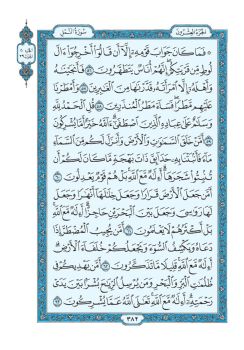 الجزء العشرون
سورة النمل
۞ فَمَا كَانَ جَوَابَ قَوْمِهِ إِلَّا أَن قَالُوا أَخْرِجُوا آلَ
لُوطٍ مِّن قَرْيَتِكُمْ إِنَّهُمْ أُنَاسٌ يَتَطَهَّرُونَ ٥٦ فَأَنجَيْنَاهُ
وَأَهْلَهُ إِلَّا امْرَأَتَهُ قَدَّرْنَاهَا مِنَ الْغَابِرِينَ ٥٧ وَأَمْطَرْنَا
عَلَيْهِم مَّطَرًا فَسَاءَ مَطَرُ الْمُنذَرِينَ ٥٨ قُلِ الْحَمْدُ لِلَّهِ
وَسَلَامٌ عَلَىٰ عِبَادِهِ الَّذِينَ اصْطَفَىٰ آللَّهُ خَيْرٌ أَمَّا يُشْرِكُونَ
٥٩ أَمَّنْ خَلَقَ السَّمَاوَاتِ وَالْأَرْضَ وَأَنزَلَ لَكُم مِّنَ السَّمَاءِ
مَاءً فَأَنبَتْنَا بِهِ حَدَائِقَ ذَاتَ بَهْجَةٍ مَّا كَانَ لَكُمْ أَن
تُنبِتُوا شَجَرَهَا أَإِلَٰهٌ مَّعَ اللَّهِ بَلْ هُمْ قَوْمٌ يَعْدِلُونَ ٦٠
أَمَّن جَعَلَ الْأَرْضَ قَرَارًا وَجَعَلَ خِلَالَهَا أَنْهَارًا وَجَعَلَ
لَهَا رَوَاسِيَ وَجَعَلَ بَيْنَ الْبَحْرَيْنِ حَاجِزًا أَإِلَٰهٌ مَّعَ اللَّهِ
بَلْ أَكْثَرُهُمْ لَا يَعْلَمُونَ ٦١ أَمَّن يُجِيبُ الْمُضْطَرَّ إِذَا
دَعَاهُ وَيَكْشِفُ السُّوءَ وَيَجْعَلُكُمْ خُلَفَاءَ الْأَرْضِ
أَإِلَٰهٌ مَّعَ اللَّهِ قَلِيلًا مَّا تَذَكَّرُونَ ٦٢ أَمَّن يَهْدِيكُمْ فِي
ظُلُمَاتِ الْبَرِّ وَالْبَحْرِ وَمَن يُرْسِلُ الرِّيَاحَ بُشْرًا بَيْنَ يَدَيْ
رَحْمَتِهِ أَإِلَٰهٌ مَّعَ اللَّهِ تَعَالَى اللَّهُ عَمَّا يُشْرِكُونَ ٦٣
٣٨٢